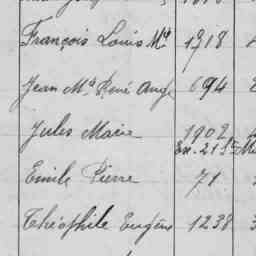 François Louis Mie 1318
Jean Mie René Ange 694
Jules Marie 1902
En. 215
Emile Pierre 71
Théophile Eugène 1238